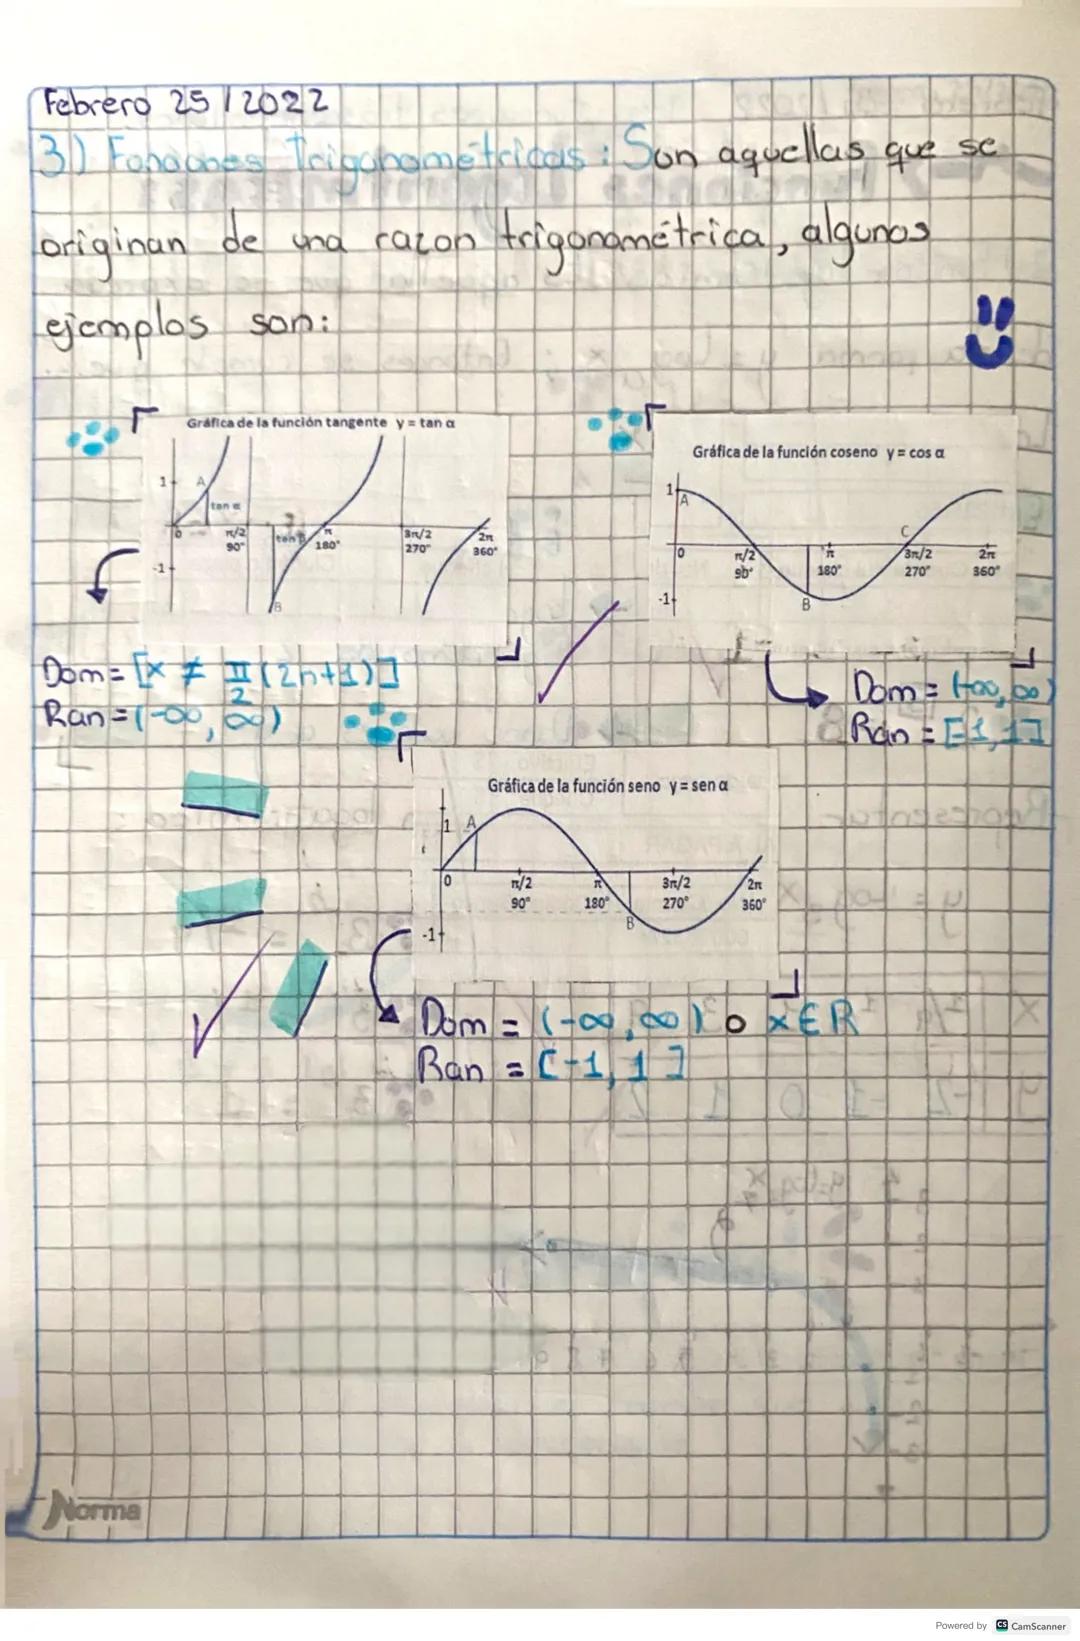 Febrero 25 / 2022
3) Funciones Trigonométricas: Son aquellas que se
originan de una razon trigonométrica, algunos
ejemplos son:
Gráfica de la función tangente y = tan α
1
A
tan α
0
π/2
90°
tan β
π
180°
3π/2
270°
2π
360°
-1
B
Dom = [x ≠ π/2 (2n+1)]
Ran = (-∞, ∞)
Gráfica de la función coseno y = cos α
1
A
0
π/2
90°
π
180°
C
3π/2
270°
2π
360°
-1
B
Dom = (-∞, ∞)
Ran = [-1, 1]
Gráfica de la función seno y = sen α
1
A
0
π/2
90°
π
180°
3π/2
270°
2π
360°
-1
B
Dom = (-∞, ∞) o x ∈ R
Ran = [-1, 1]
Norma
Powered by CS CamScanner